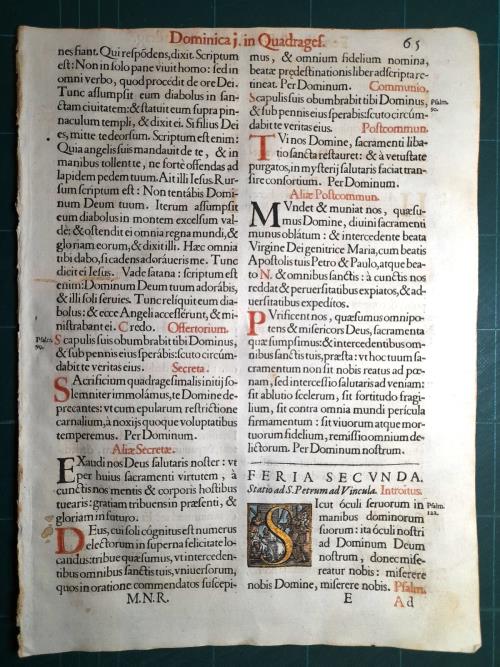 Dominica j. in Quadrages. 65
nes fiant. Qui respōdens, dixit. Scriptum
est: Non in solo pane viuit homo: sed in
omni verbo, quod procédit de ore Dei.
Tunc assumpsit eum diabolus in san-
ctam ciuitatem: & statuit eum supra pin-
naculum templi, & dixit ei. Si filius Dei
es, mitte te deorsum. Scriptum est enim:
Quia angelis suis mandauit de te, & in
manibus tollent te, ne fortè offendas ad
lapidem pedem tuum. Ait illi Iesus. Rur-
sum scriptum est: Non tentábis Domi-
num Deum tuum. Iterum assumpsit
eum diabolus in montem excelsum val-
dè: & ostendit ei omnia regna mundi, &
gloriam eorum, & dixit illi. Hæc omnia
tibi dabo, si cadens adoráueris me. Tunc
dicit ei Iesus. Vade satana: scriptum est
enim: Dominum Deum tuum adorábis,
& illi soli seruies. Tunc relíquit eum dia-
bolus: & ecce Angeli accesserunt, & mi-
nistrabant ei. Credo. Offertorium.
Psalm. 90.
Scapulis suis obumbrabit tibi Dominus,
& sub pennis eius sperábis: scuto circúm-
dabit te veritas eius. Secreta.
SAcrificium quadragesimalis initij so-
lemniter immolámus, te Domine de-
precantes: vt cum epularum restrictione
carnalium, à noxijs quoque voluptatibus
temperemus. Per Dominum.
Aliæ Secretæ.
EXaudi nos Deus salutaris noster: vt
per huius sacramenti virtutem, à
cunctis nos mentis & corporis hostibus
tuearis: gratiam tribuens in præsenti, &
gloriam in futuro.
DEus, cui soli cógnitus est numerus
electorum in superna felicitate lo-
candus: tribue quæsumus, vt interceden-
tibus omnibus sanctis tuis, vniuersorum,
quos in oratione commendatos suscepi-
M.N.R.
mus, & omnium fidelium nomina,
beatæ prędestinationis liber adscripta re-
tineat. Per Dominum. Communio.
Scapulis suis obumbrabit tibi Dominus,
Psalm. 90.
& sub pennis eius sperabis: scuto circúm-
dabit te veritas eius. Postcommun.
TVi nos Domine, sacramenti liba-
tio sancta restauret: & à vetustate
purgatos, in mysterij salutaris faciat tran-
sire consortium. Per Dominum.
Aliæ Postcommun.
MVndet & muniat nos, quæsu-
mus Domine, diuini sacramenti
munus oblátum: & intercedente beata
Virgine Dei genitrice Maria, cum beatis
Apostolis tuis Petro & Paulo, atque bea-
to N. & omnibus sanctis: à cunctis nos
reddat & peruersitatibus expiatos, & ad-
uersitatibus expeditos.
PVrificent nos, quæsumus omnipo-
tens & misericors Deus, sacramenta
quæ sumpsimus: & intercedentibus om-
nibus sanctis tuis, præsta: vt hoc tuum sa-
cramentum non sit nobis reatus ad pœ-
nam, sed intercessio salutaris ad veniam:
sit ablutio scelerum, sit fortitudo fragi-
lium, sit contra omnia mundi perícula
firmamentum: sit viuorum atque mor-
tuorum fidelium, remissio omnium de-
lictorum. Per Dominum nostrum.
FERIA SECVNDA.
Statio ad S. Petrum ad Vincula. Introitus.
SIcut óculi seruorum in
Psalm. 122.
manibus dominorum
suorum: ita óculi nostri
ad Dominum Deum
nostrum, donec mise-
reatur nobis: miserere
nobis Domine, miserere nobis. Psalm.
E Ad